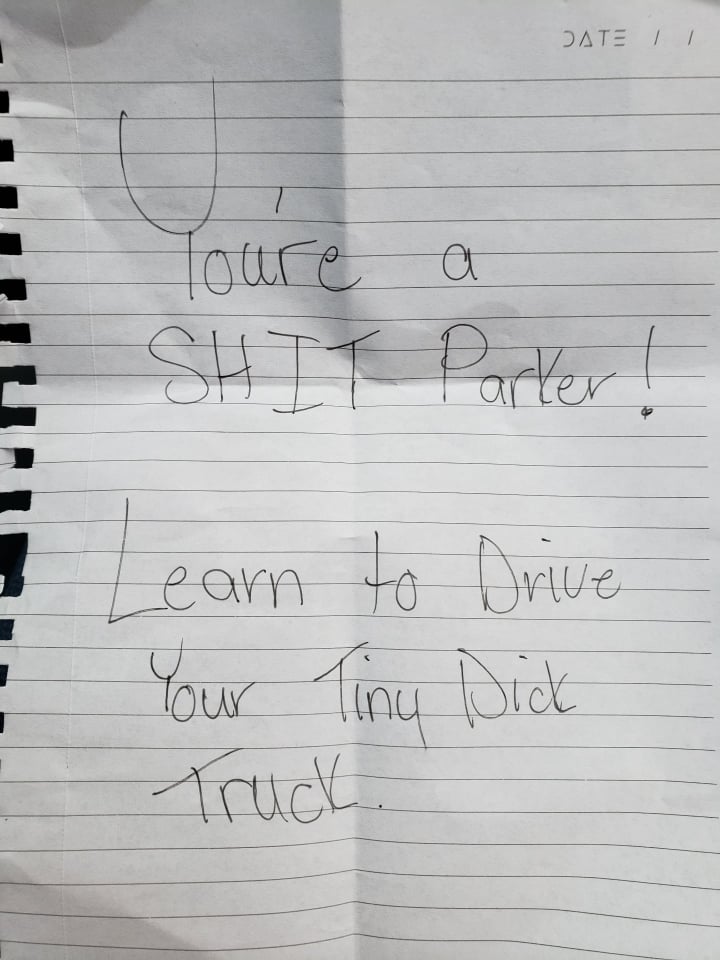 DATE / /
You're a
SHIT Parker!
Learn to Drive
Your Tiny Dick
Truck.